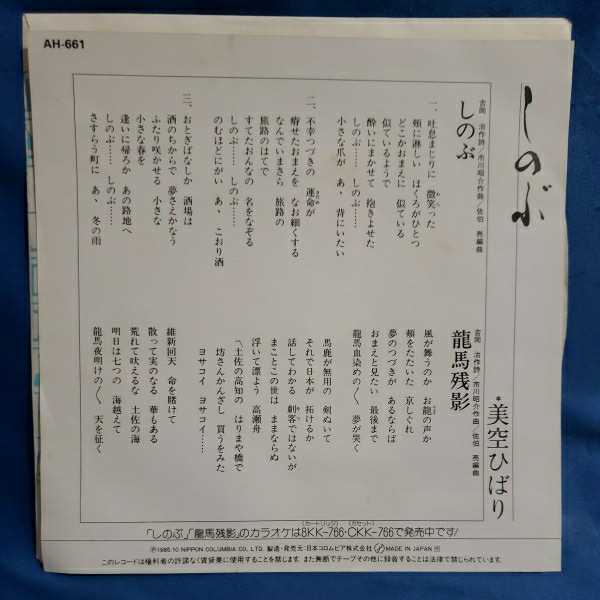 AH-661
しのぶ
*美空ひばり
しのぶ
吉岡 治作詩/市川昭介作曲/佐伯 亮編曲
一、吐息まじりに 微笑った
頬に淋しい ほくろがひとつ
どこかおまえに 似ている
似ているようで
酔いにまかせて 抱きよせた
しのぶ…… しのぶ……
小さな爪が あゝ 背にいたい
二、不幸つづきの 運命が
瘠せたおまえを なお細くする
なんでいまさら 旅路の
旅路のはてで
すてたおんなの 名をなぞる
しのぶ…… しのぶ……
のむほどにがい あゝ こおり酒
三、おとぎばなしか 酒場は
酒のちからで 夢さえかなう
ふたり咲かせる 小さな
小さな春を
逢いに帰ろか あの路地へ
しのぶ…… しのぶ……
さすらう町に あゝ 冬の雨
龍馬残影
吉岡 治作詩/市川昭介作曲/佐伯 亮編曲
風が舞うのか お龍の声か
頬をたたいた 京しぐれ
夢のつづきが あるならば
おまえと見たい 最後まで
龍馬血染めの〱 夢が哭く
馬鹿が無用の 剣ぬいて
それで日本が 拓けるか
話してわかる 刺客ではないが
まことこの世は ままならぬ
浮いて漂よう 高瀬舟
〽土佐の高知の はりまや橋で
坊さんかんざし 買うをみた
ヨサコイ ヨサコイ……
維新回天 命を賭けて
散って実のなる 華もある
荒れて吠えるな 土佐の海
明日は七つの 海越えて
龍馬夜明けの〱 天を征く
「しのぶ」「龍馬残影」のカラオケは8KK-766(カートリッジ)・CKK-766(カセット)で発売中です!
Ⓟ1985.10 NIPPON COLUMBIA CO., LTD. 製造・発売元:日本コロムビア株式会社 MADE IN JAPAN
このレコードは権利者の許諾なく賃貸業に使用することを禁じます。また無断でテープその他に録音することは法律で禁じられています。